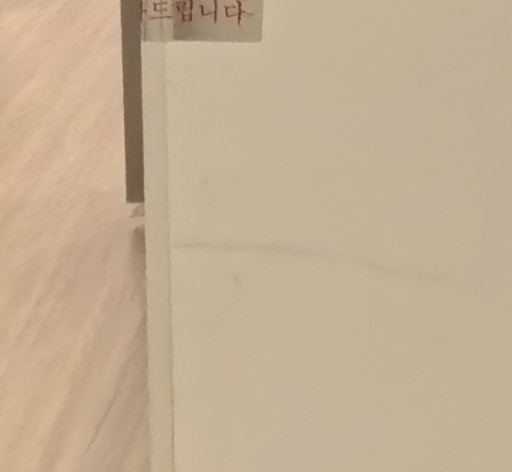 드립니다